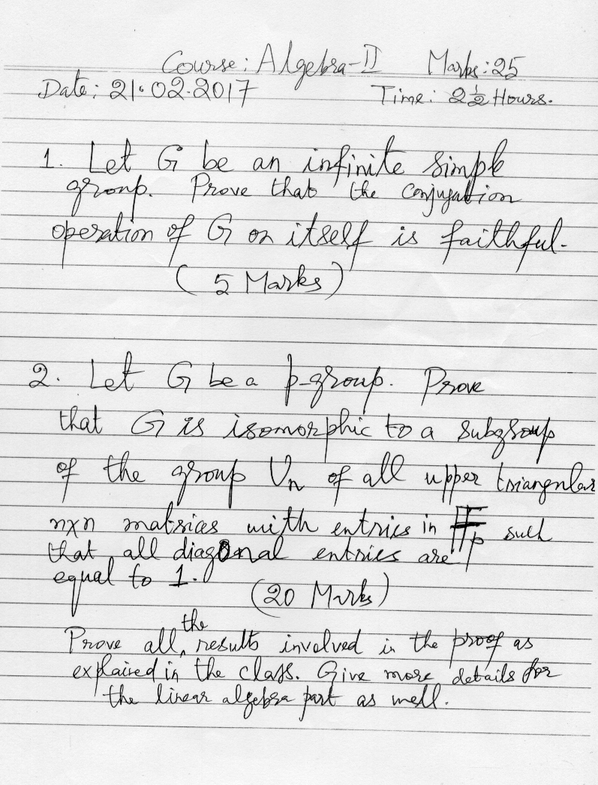 Course: Algebra-II Marks: 25
Date: 21.02.2017 Time: 2½ Hours.
1. Let G be an infinite simple
group. Prove that the conjugation
operation of G on itself is faithful.
(5 Marks)
2. Let G be a p-group. Prove
that G is isomorphic to a subgroup
of the group Un of all upper triangular
nxn matrias with entries in Fp such
that all diagonal entries are
equal to 1.
(20 Marks)
Prove all the results involved in the proof as
explaied in the class. Give more details for
the linear algebra part as well.